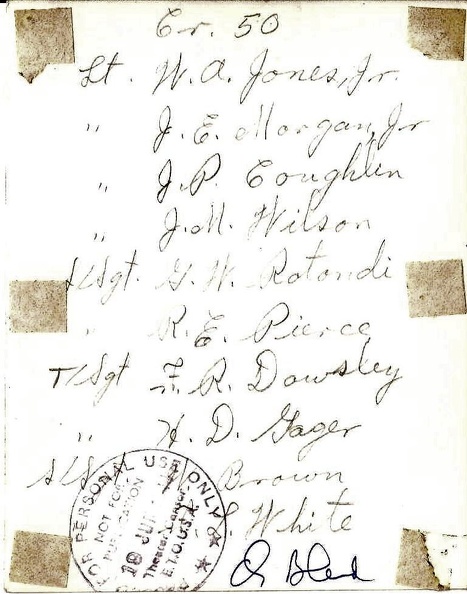 Cr. 50
Lt. W. A. Jones, Jr.
" J. E. Morgan, Jr
" J. P. Coughlin
" J. M. Wilson
S/Sgt. G. W. Rotondi
" R. E. Pierce
T/Sgt F. R. Dowsley
" H. D. Gager
S/S Brown
White
FOR PERSONAL USE ONLY
NOT FOR
PUBLICATION
18 JUN
Theater Censor
E.T.O.U.S.A.